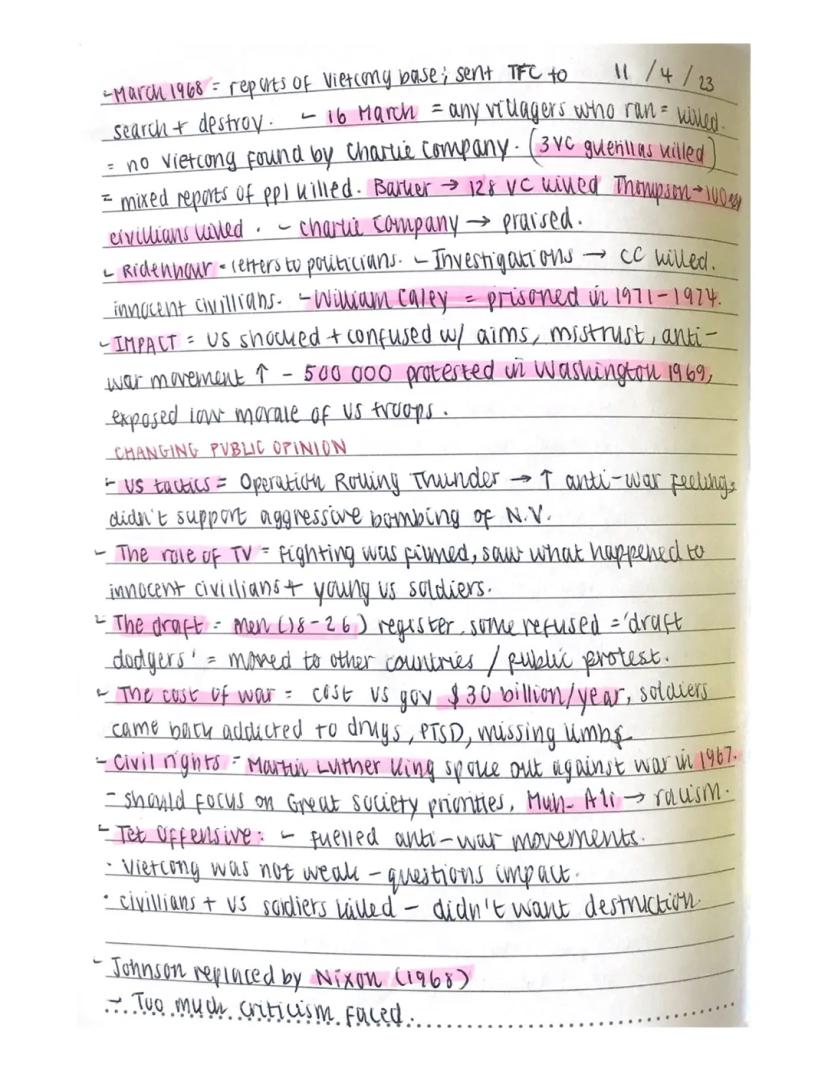 - March 1968 = reports of Vietcong base; sent TFC to 11/4/23
search + destroy. - 16 March = any villagers who ran = killed.
= no Vietcong found by Charlie Company. (3 VC guerillas killed)
= mixed reports of ppl killed. Barker → 128 VC killed Thompson →
civillians killed. - Charlie Company → praised.
- Ridenhour = letters to politicians. - Investigations → CC killed.
innocent civillians. - William Caley = prisoned in 1971-1974.
- IMPACT = US shocked + confused w/ aims, mistrust, anti-
war movement ↑ - 500 000 protested in Washington 1969,
exposed low morale of US troops.
CHANGING PUBLIC OPINION
- US tactics = Operation Rolling Thunder → ↑ anti-war feelings,
didn't support aggressive bombing of N.V.
- The role of TV = fighting was filmed, saw what happened to
innocent civillians + young US soldiers.
- The draft = men (18-26) register, some refused = 'draft
dodgers' = moved to other countries / public protest.
- The cost of war = cost US gov $30 billion/year, soldiers
came back addicted to drugs, PTSD, missing limbs.
- Civil rights = Martin Luther King spoke out against war in 1967.
- should focus on Great Society priorities, Muh- Ali → racism.
- Tet Offensive: - fuelled anti-war movements.
· Vietcong was not weak - questions impact.
· civillians + US soldiers killed - didn't want destruction.
- Johnson replaced by Nixon (1968)
→ Too much criticism faced.